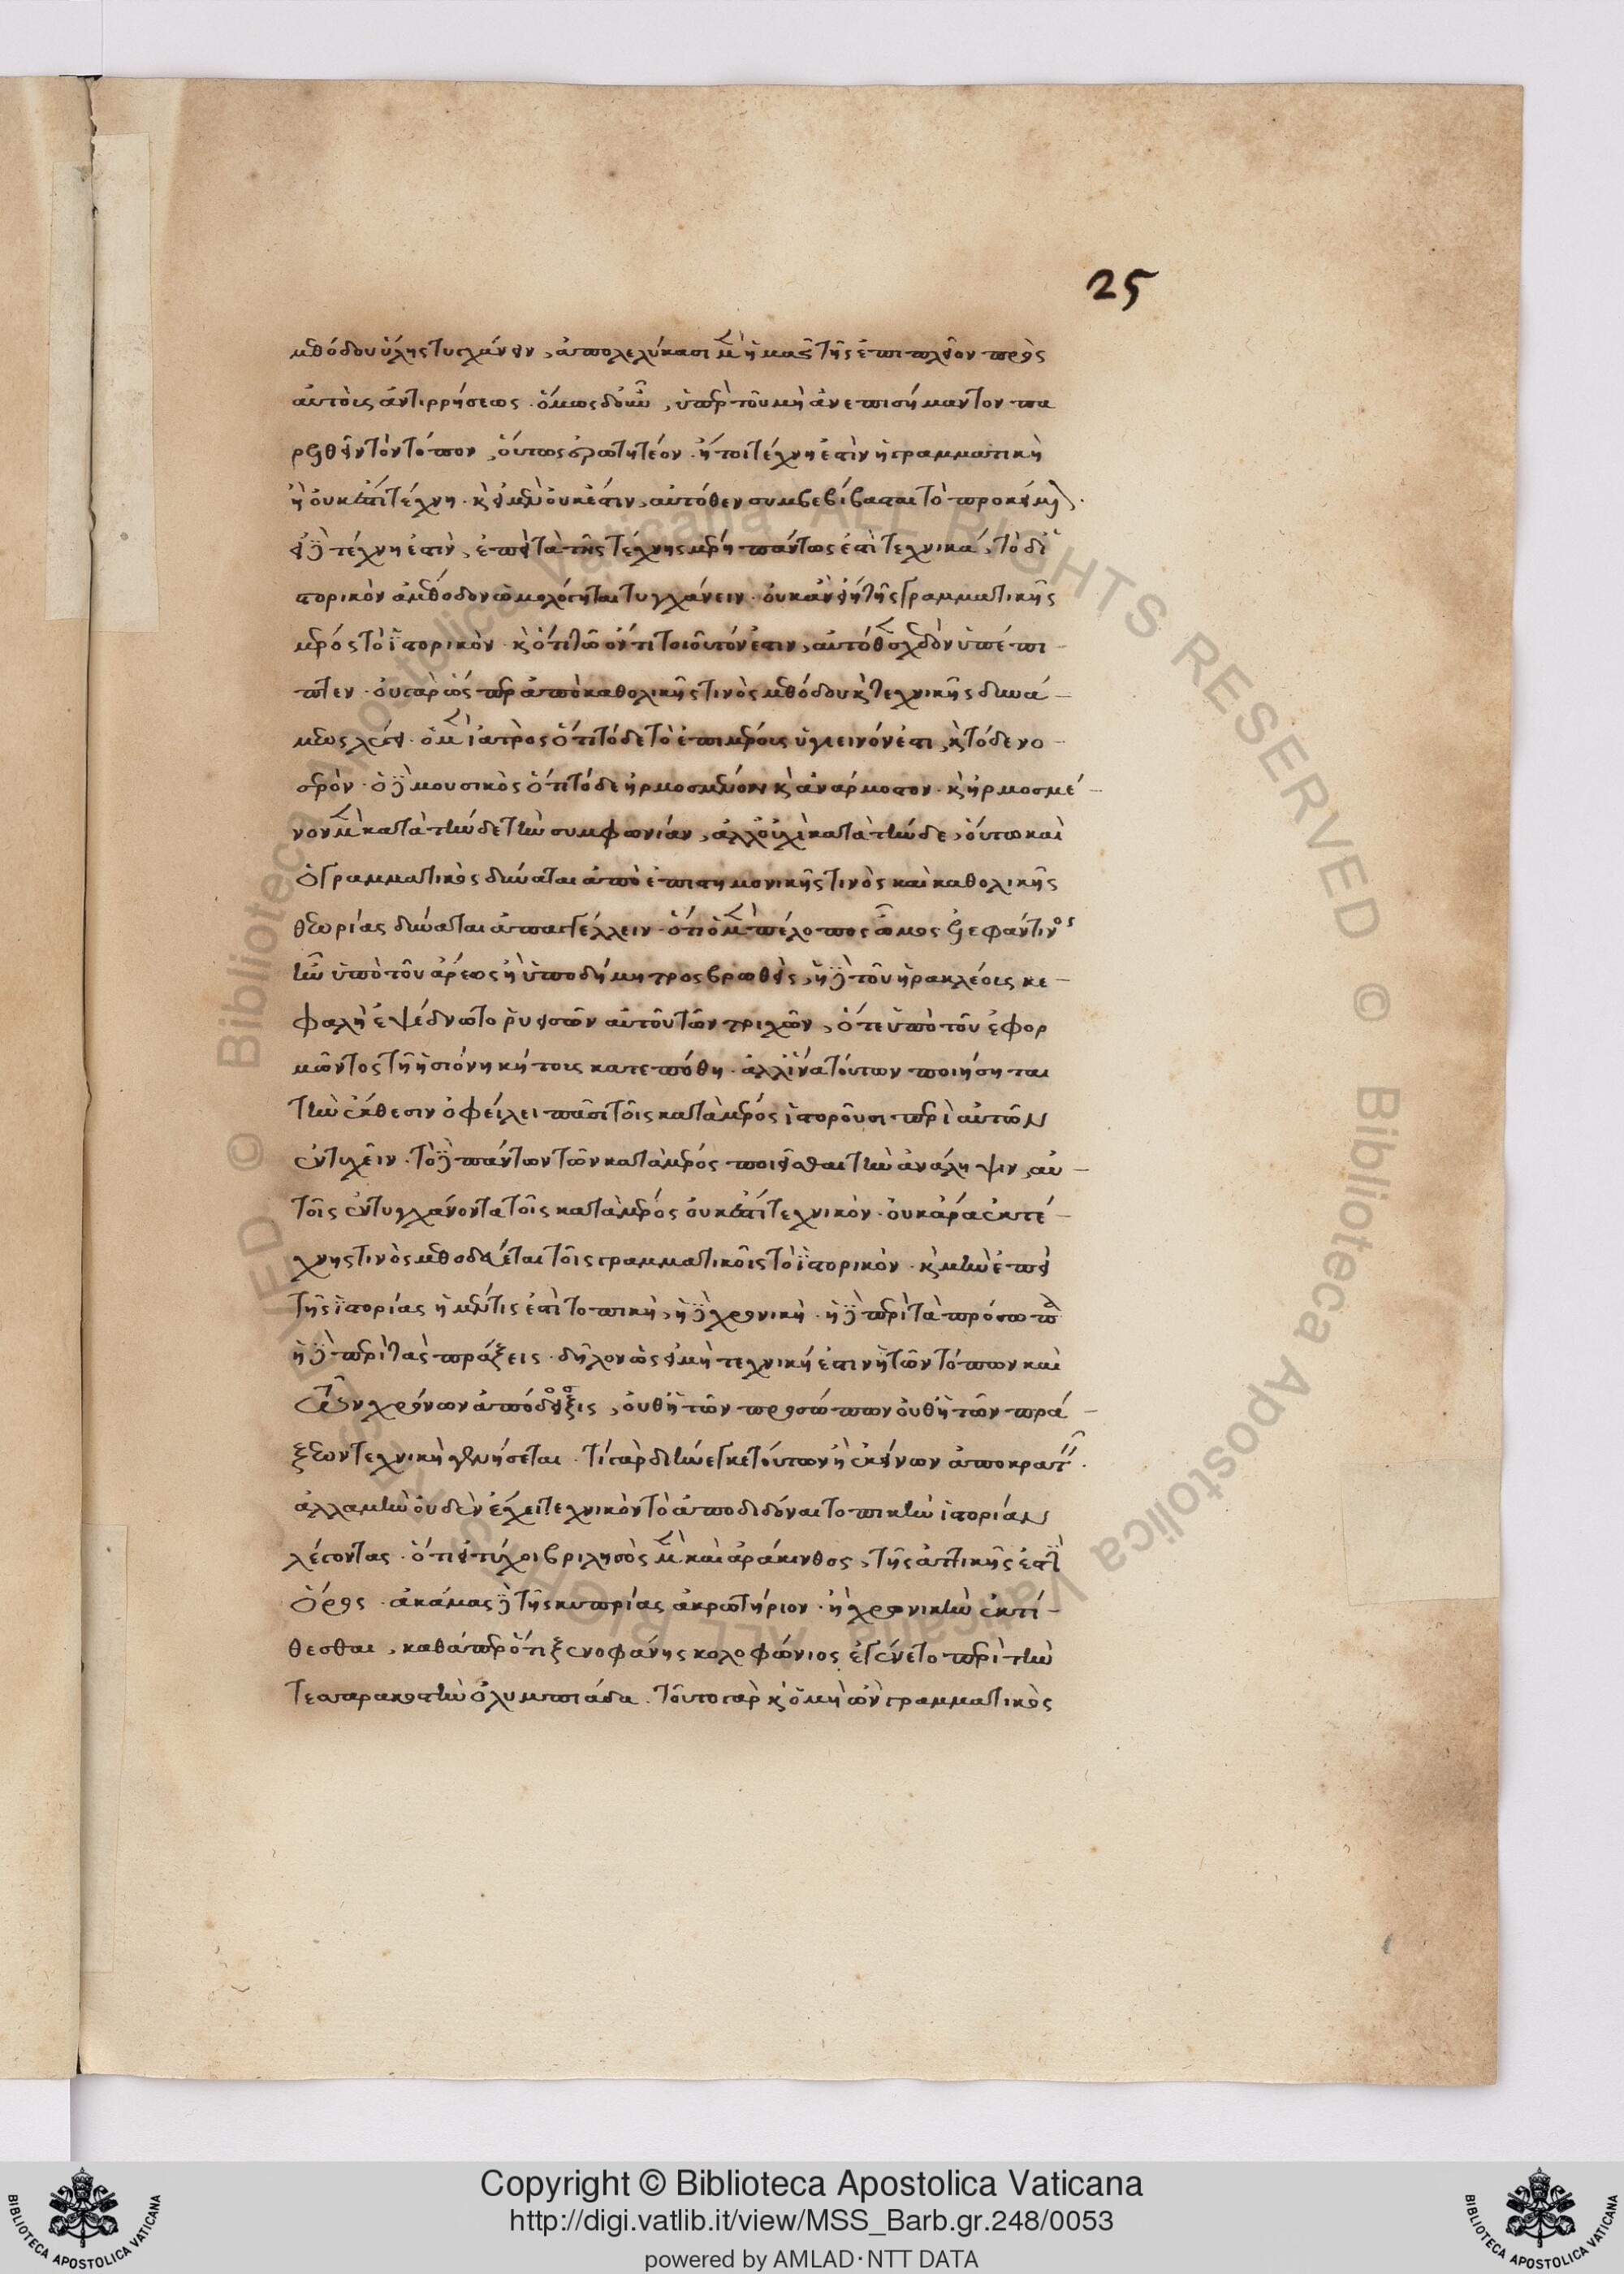 25
μεθόδου ὕλης τυγχάνειν, ἀπολελύκασι μὲν ἡμᾶς τῆς ἐπιπλεῖον πρὸς
αὐτοὺς ἀντιρρήσεως. ὅμως δ' οὖν, ὑπὲρ τοῦ μὴ ἀνεπισήμαντον πα
ρελθεῖν τὸν τόπον, οὕτως ἐρωτητέον. ἤτοι τέχνη ἐστὶν ἡ γραμματικὴ
ἢ οὐκ ἔστι τέχνη. κ εἰ μὲν οὐκ ἔστιν, αὐτόθεν συμβεβίβασται τὸ προκείμενον.
εἰ δὲ τέχνη ἐστὶν, ἐπεὶ τὰ τῆς τέχνης μέρη πάντως ἐστὶ τεχνικά, τὸ δὲ ἱ
στορικὸν ἀμέθοδον ὡμολόγηται τυγχάνειν. οὐκ ἂν εἴη τῆς γραμματικῆς
μέρος τὸ ἱστορικὸν. κ ὅτι τῷ ὄντι τοιοῦτόν ἐστιν, αὐτόθεν σχεδὸν ὑπέπι
πτεν. οὐ γὰρ ὥσπερ ἀπὸ καθολικῆς τινὸς μεθόδου κ τεχνικῆς δυνά
μεως λέγει. ὁ μὲν ἰατρὸς ὅτι τόδε τὸ ἐπιμέρους ὑγιεινόν ἐστι, κ τόδε νο
σερὸν. ὁ δὲ μουσικὸς ὅτι τόδε ἡρμοσμένον κ ἀνάρμοστον. κ ἡρμοσμέ
νον μὲν κατὰ τήνδε τὴν συμφωνίαν, ἀλλ' οὐχὶ κατὰ τήνδε, οὕτω καὶ
ὁ γραμματικὸς δύναται ἀπὸ ἐπιστημονικῆς τινὸς καὶ καθολικῆς
θεωρίας δύναται ἀπαγγέλλειν. ὅτι ὁ μὲν πέλοπος ὦμος ἐλεφάντινος
ἦν ὑπὸ τοῦ ἄρεως ἢ ὑπὸ δήμητρος βρωθεὶς, ἡ δὲ τοῦ ἡρακλέους κε
φαλὴ ἐψέδνωτο ῥυεισῶν αὐτοῦ τῶν τριχῶν, ὅτε ὑπὸ τοῦ ἐφορ
μῶντος τῇ ἡσιόνῃ κήτους κατεπόθη. ἀλλ' ἵνα τούτων ποιήσηται
τὴν ἔκθεσιν ὀφείλει πᾶσι τοῖς κατὰ μέρος ἱστοροῦσι περὶ αὐτῶν
ἐντυχεῖν. τὸ δὲ πάντων τῶν κατὰ μέρος ποιεῖσθαι τὴν ἀνάληψιν, αὐ
τοῖς ἐντυγχάνοντα τοῖς κατὰ μέρος οὐκ ἔστι τεχνικόν. οὐκ ἄρα ἐκ τέ
χνης τινὸς μεθοδεύεται τοῖς γραμματικοῖς τὸ ἱστορικὸν. κ μὴν ἐπεὶ
τῆς ἱστορίας ἡ μέν τις ἐστὶ τοπικὴ, ἡ δὲ χρονικὴ. ἡ δὲ περὶ τὰ πρόσωπα
ἡ δὲ περὶ τὰς πράξεις. δῆλον ὡς εἰ μὴ τεχνική ἐστιν ἡ τῶν τόπων καὶ
τῶν χρόνων ἀπόδειξις, οὐθ' ἡ τῶν προσώπων οὐθ' ἡ τῶν πρά
ξεων τεχνικὴ γενήσεται. τί γὰρ διήνεγκε τούτων ἢ ἐκείνων ἀποκρατεῖν.
ἀλλὰ μὴν οὐδὲν ἔχει τεχνικὸν τὸ ἀποδιδόναι τοπικὴν ἱστορίαν
λέγοντας. ὅτι εἰ τύχοι βριλησὸς μὲν καὶ ἀράκινθος, τῆς ἀττικῆς ἐστὶν
ὄρος. ἀκάμας δὲ τῆς κυπρίας ἀκρωτήριον. ἢ χρονικὴν ἐκτί
θεσθαι, καθάπερ ὅτι ξενοφάνης κολοφώνιος ἐγένετο περὶ τὴν
τεσσαρακοστὴν ὀλυμπιάδα. τοῦτο γὰρ κ ὁ μὴ ὢν γραμματικὸς
Copyright © Biblioteca Apostolica Vaticana
http://digi.vatlib.it/view/MSS_Barb.gr.248/0053
powered by AMLAD·NTT DATA